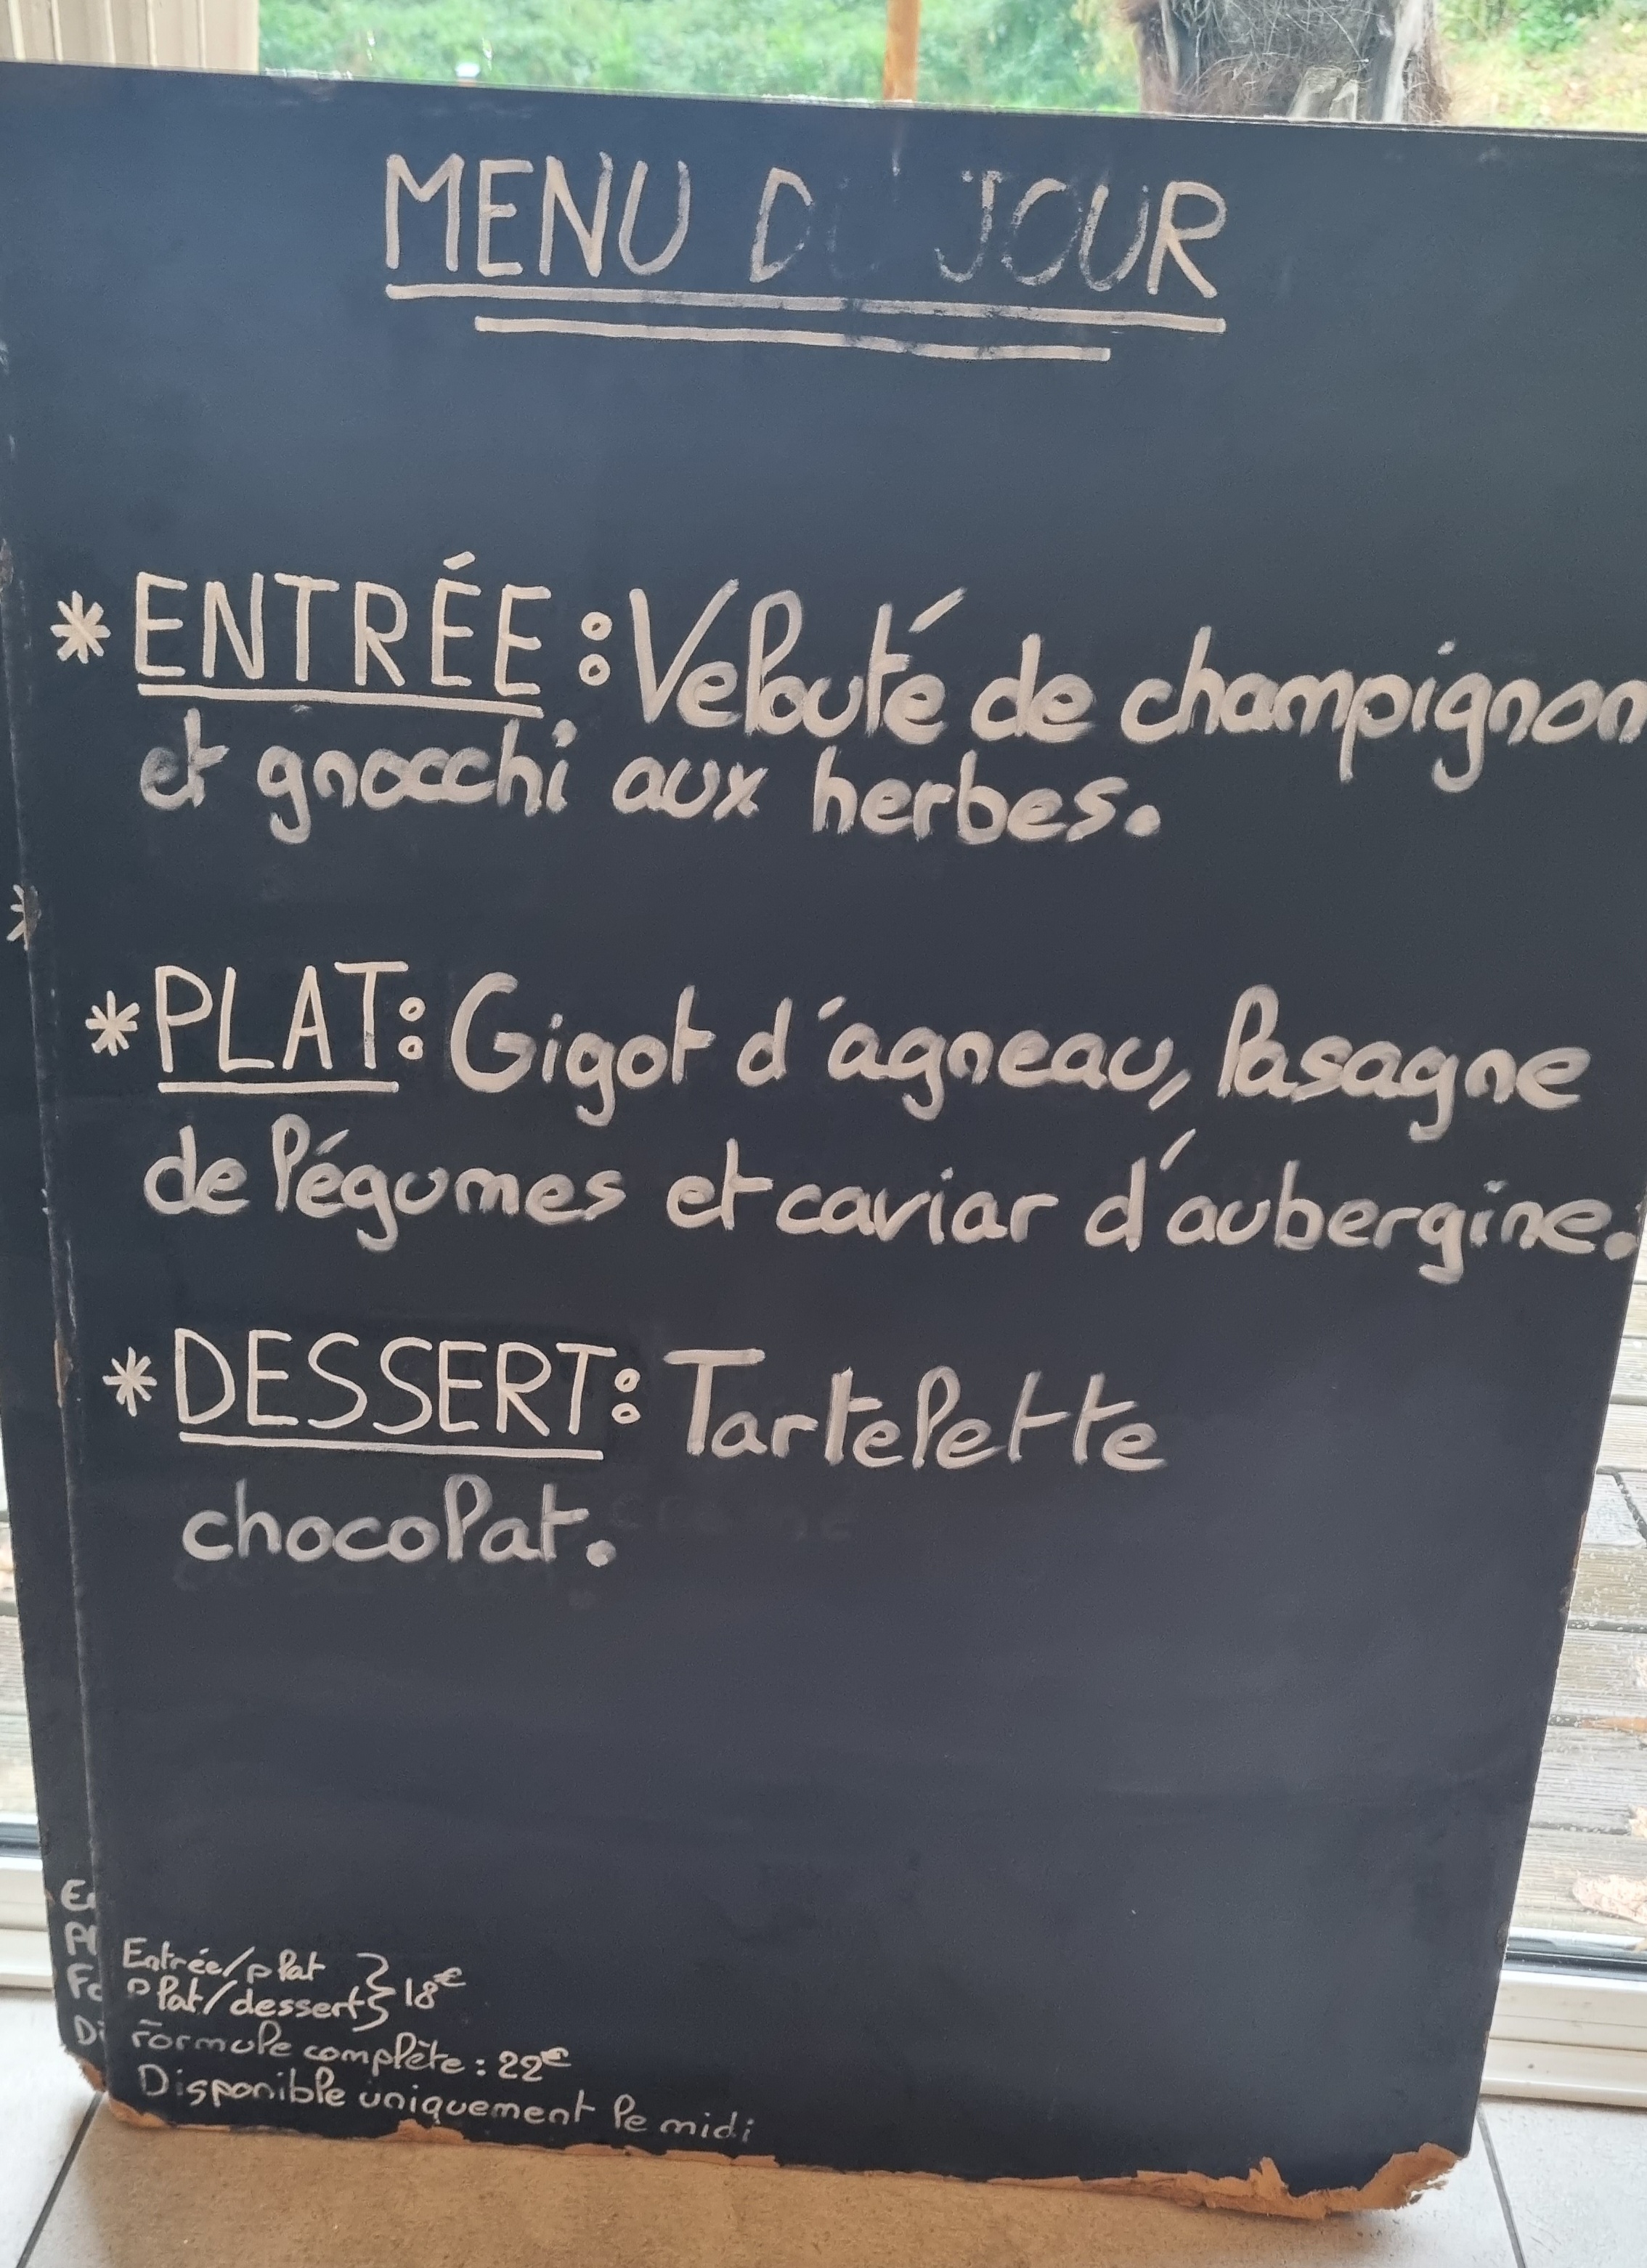 MENU DU JOUR
* ENTRÉE : Velouté de champignon
et gnocchi aux herbes.
* PLAT : Gigot d'agneau, lasagne
de légumes et caviar d'aubergine.
* DESSERT : Tartelette
chocolat.
Entrée/plat
Plat/dessert } 18€
Formule complète : 22€
Disponible uniquement le midi